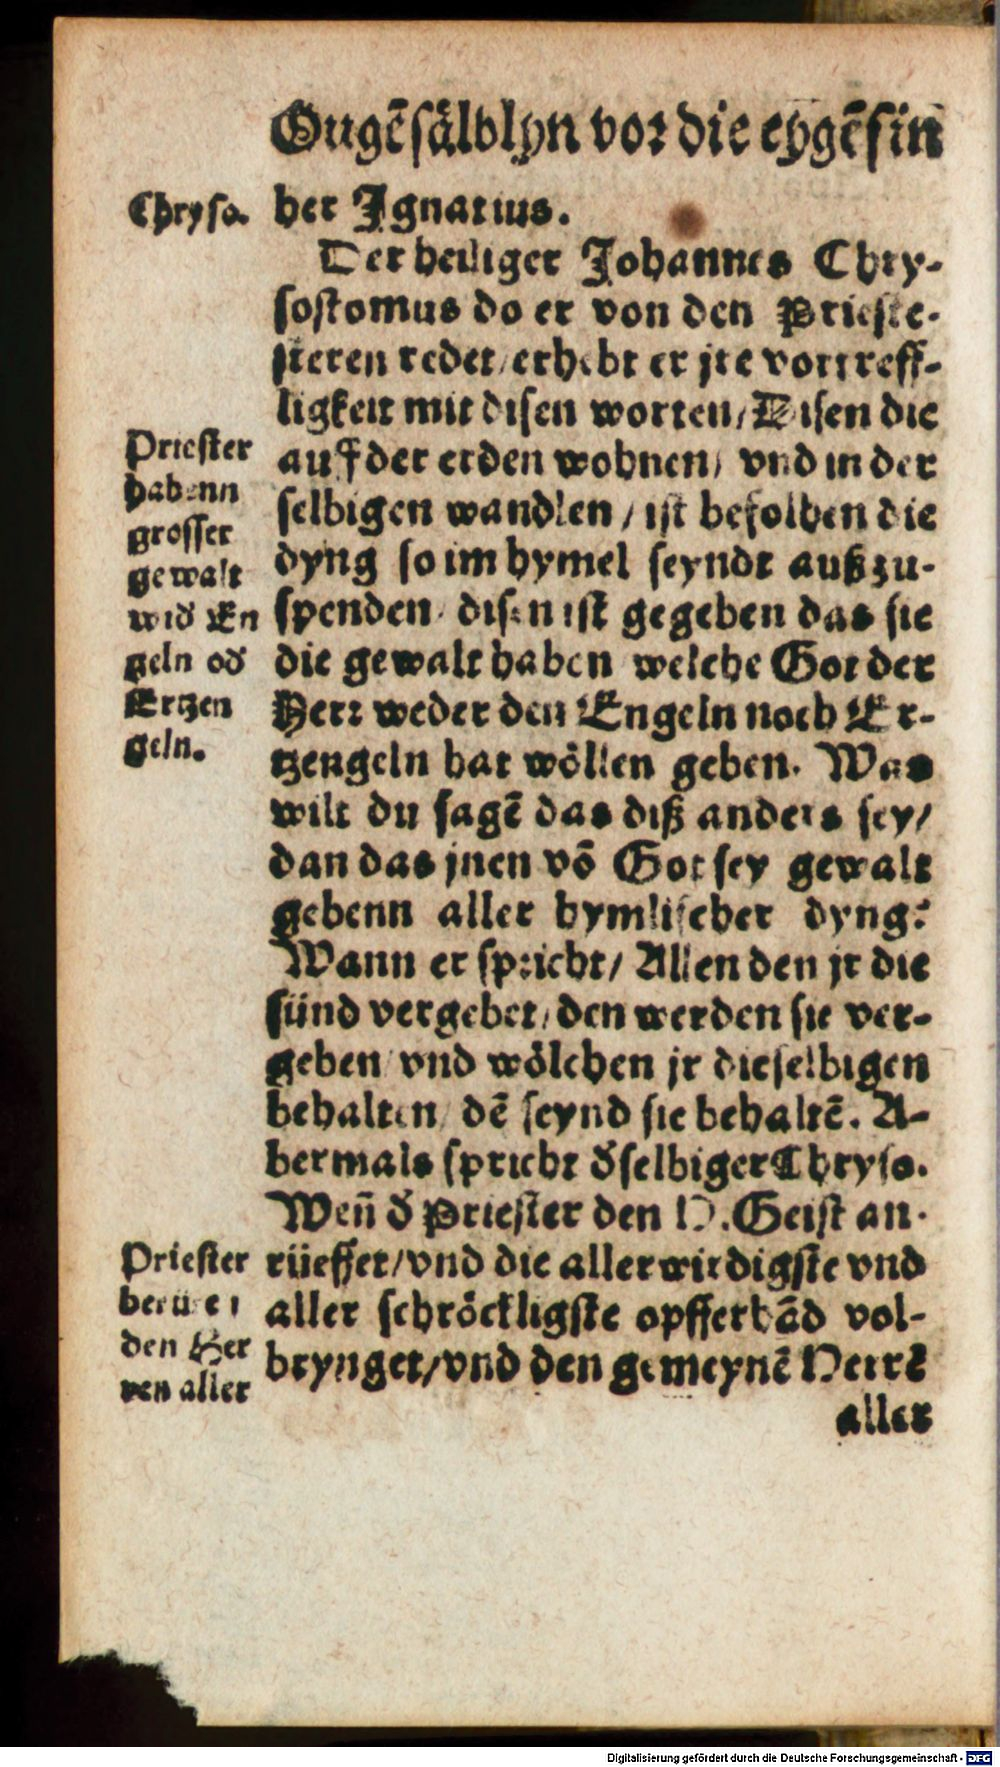 Ougēsälblyn vor die eygēsin
Chryso.
her Ignatius.
Der heiliger Johannes Chry-
sostomus do er von den Prieste-
steren redet/ erhebt er jre vortreff-
ligkeit mit disen worten/ Disen die
auff der erden wohnen/ vnd in der
selbigen wandlen/ ist befolhen die
dyng so im hymel seyndt außzu-
spenden/ disen ist gegeben das sie
die gewalt haben welche Got der
Herr weder den Engeln noch Er-
tzengeln hat wöllen geben. Was
wilt du sagē das diß anders sey/
dan das jnen vō Got sey gewalt
gebenn aller hymlischer dyng?
Wann er spricht/ Allen den jr die
sünd vergebet/ den werden sie ver-
geben/ vnd wölchen jr dieselbigen
behalten/ dē seynd sie behaltē. A-
bermals spricht d̄selbiger Chryso.
Wen̄ d̄ Priester den H. Geist an-
rüeffet/ vnd die aller wirdigste vnd
aller schröckligste opfferhād vol-
brynget/ vnd den gemeynē Herrē
aller
Priester
habenn
grosser
gewalt
wid̄ En
geln od̄
Ertzen
geln.
Priester
den Her
ren aller
Digitalisierung gefördert durch die Deutsche Forschungsgemeinschaft - DFG